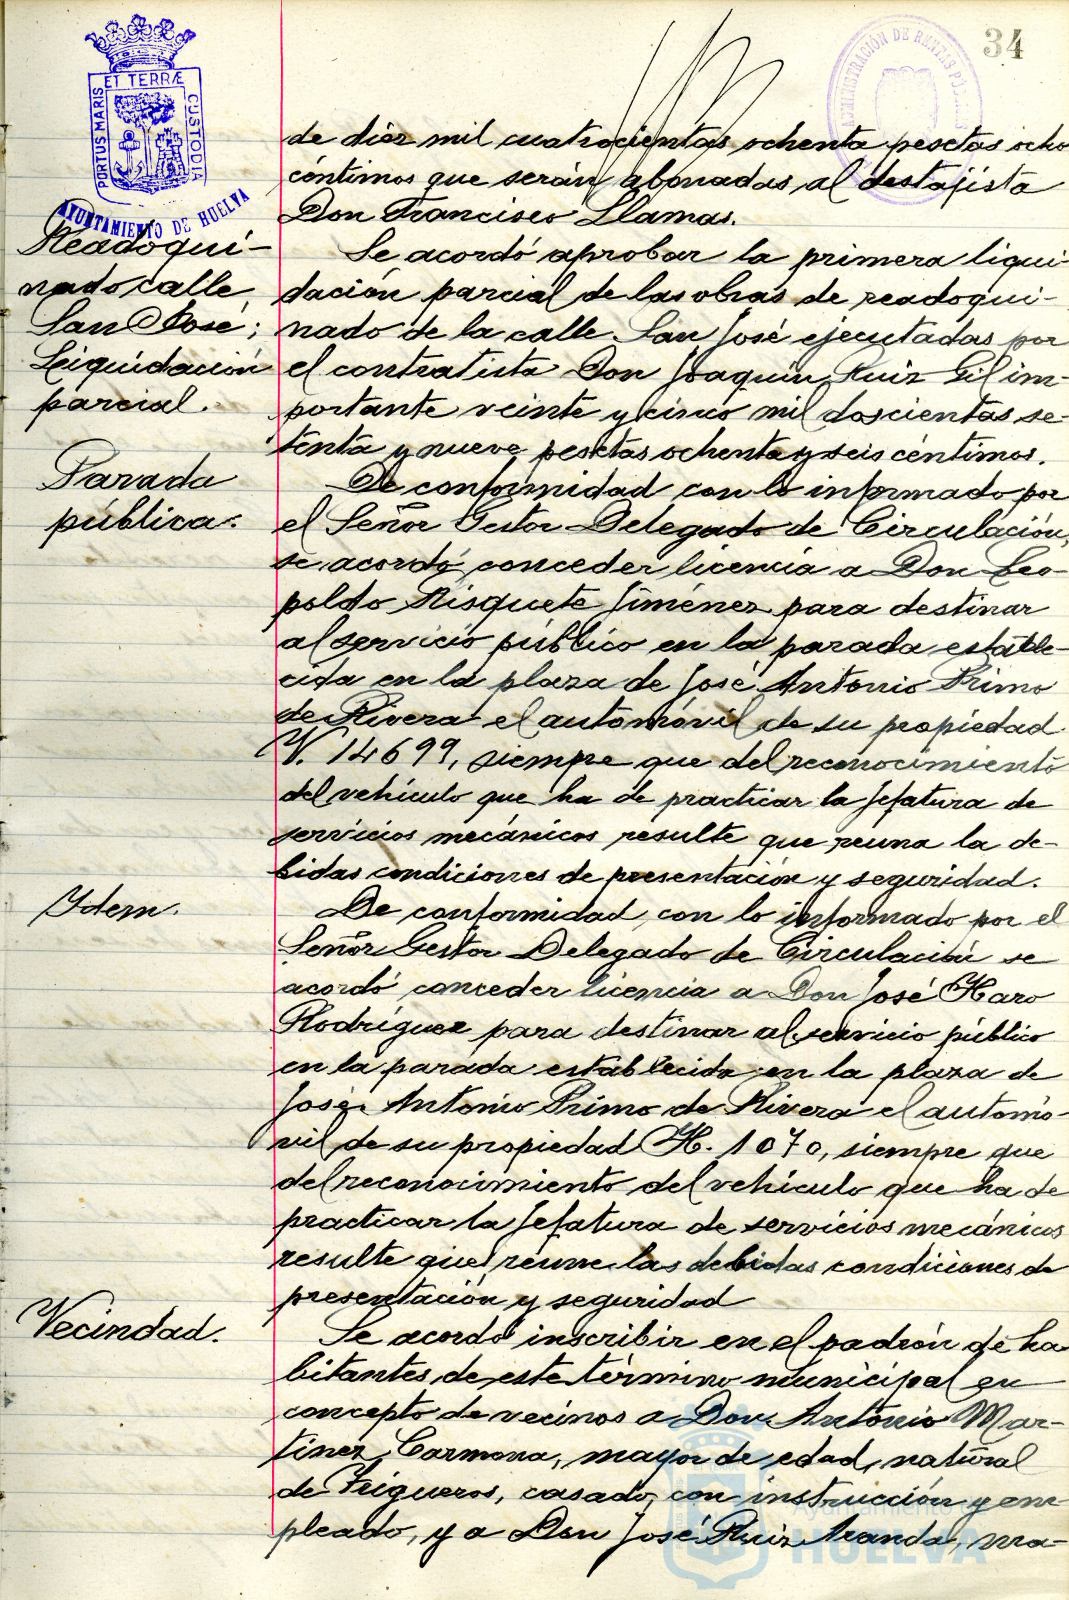 34
PORTUS MARIS ET TERRÆ CUSTODIA
AYUNTAMIENTO DE HUELVA
ADMINISTRACIÓN DE RENTAS PÚBLICAS
de diez mil cuatrocientas ochenta pesetas ocho
céntimos que serán abonadas al destajista
Don Francisco Llamas.
Readoqui-
nado calle
San José;
Liquidación
parcial.
Se acordó aprobar la primera liqui-
dación parcial de las obras de readoqui-
nado de la calle San José ejecutadas por
el contratista Don Joaquin Ruiz Gil im-
portante veinte y cinco mil doscientas se-
tenta y nueve pesetas ochenta y seis céntimos.
Parada
pública.
De conformidad con lo informado por
el Señor Gestor Delegado de Circulación,
se acordó conceder licencia a Don Leo-
poldo Risquete Jiménez para destinar
al servicio público en la parada estable-
cida en la plaza de José Antonio Primo
de Rivera el automóvil de su propiedad
V. 14699, siempre que del reconocimiento
del vehículo que ha de practicar la Jefatura de
servicios mecánicos resulte que reuna la de-
bidas condiciones de presentación y seguridad.
Ydem.
De conformidad con lo informado por el
Señor Gestor Delegado de Circulación se
acordó conceder licencia a Don José Haro
Rodríguez para destinar al servicio público
en la parada establecida en la plaza de
José Antonio Primo de Rivera el automó-
vil de su propiedad H. 1070, siempre que
del reconocimiento del vehículo que ha de
practicar la Jefatura de servicios mecánicos
resulte que reune las debidas condiciones de
presentación y seguridad
Vecindad.
Se acordó inscribir en el padrón de ha-
bitantes de este término municipal en
concepto de vecinos a Don Antonio Mar-
tínez Carmona, mayor de edad, natural
de Trigueros, casado, con instrucción y em-
pleado, y a Don José Ruiz Aranda, ma-
Ayuntamiento
HUELVA